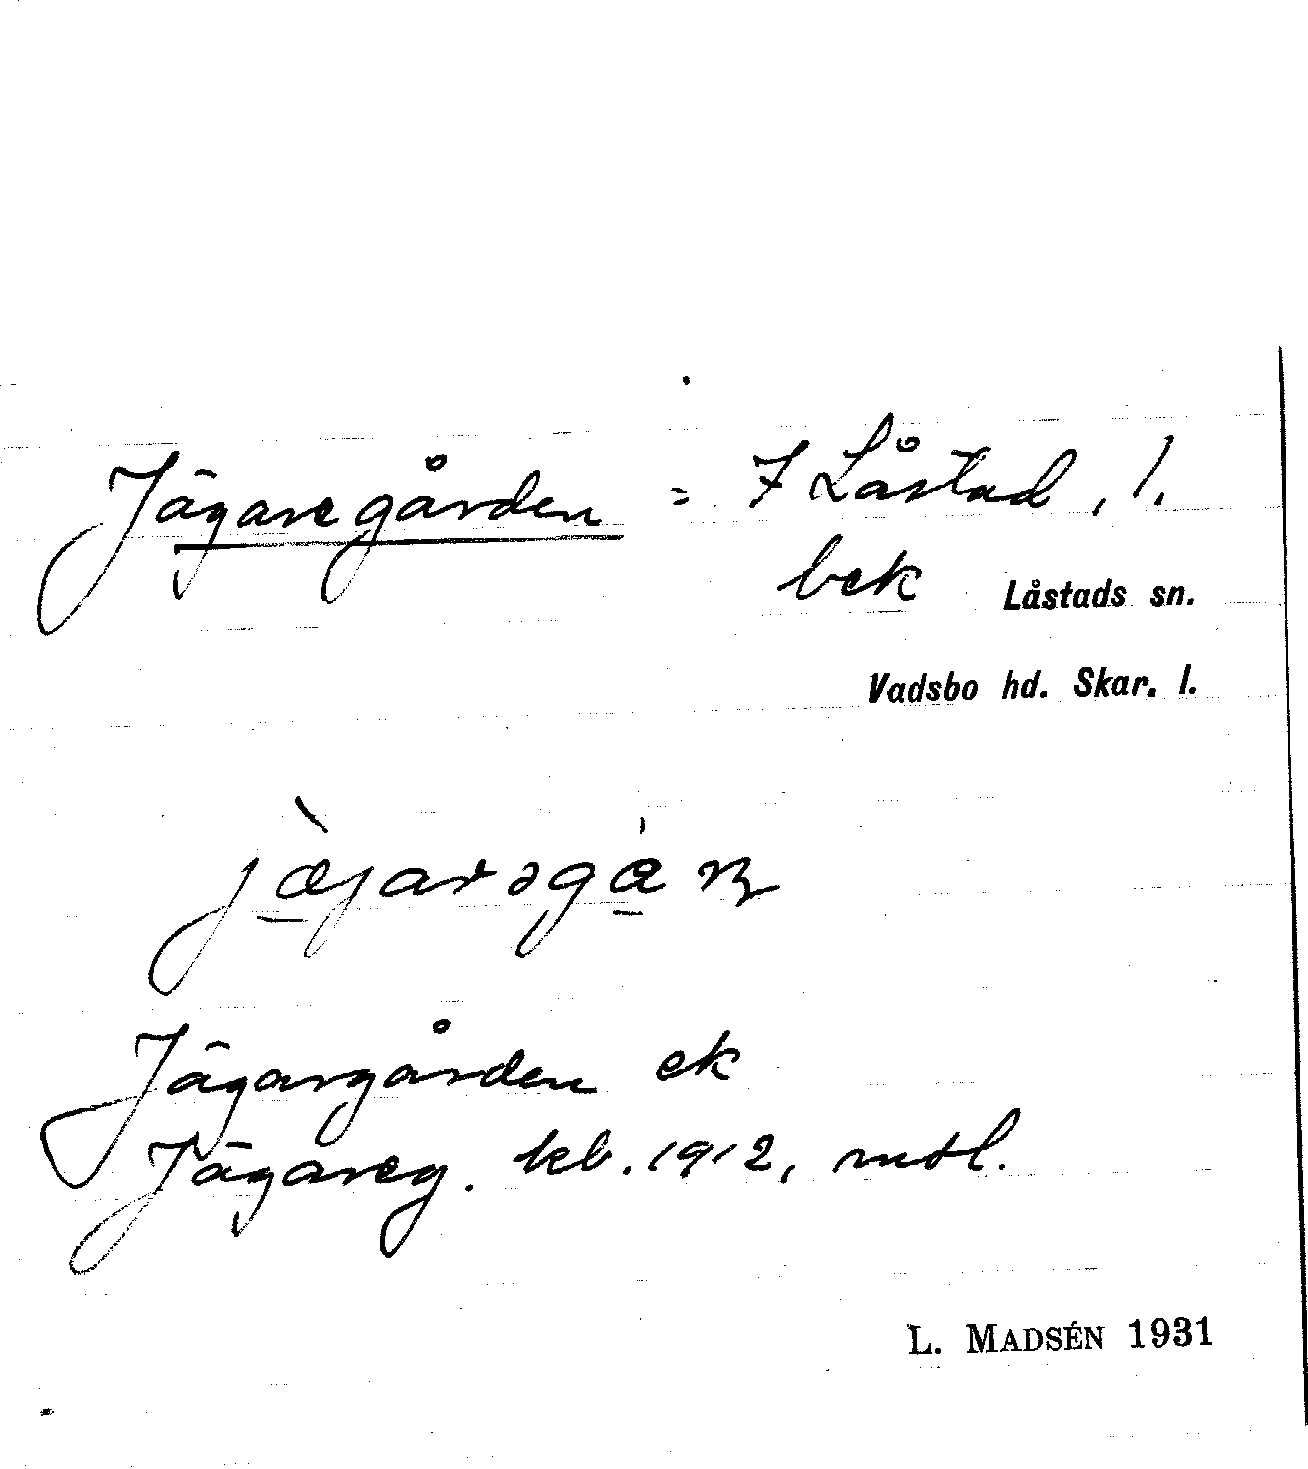 Jägaregården = 7 Låstad, l.
bek Låstads sn.
Vadsbo hd. Skar. l.
Jägargården ek
Jägareg. kb. 1912, mtl.
L. MADSÉN 1931